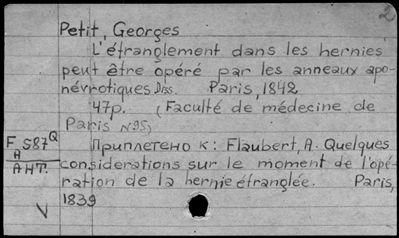 2
Petit, Georges
L'étranglement dans les hernies
peut être opéré par les anneaux apo-
névrotiques Diss. Paris, 1842
47p. (Faculté de médecine de
Paris N95)
F S87Q
A
АНТ.
Приплетено к: Flaubert, A. Quelques
considerations sur le moment de l'opé-
ration de la hernie étranglée. Paris,
1839
V